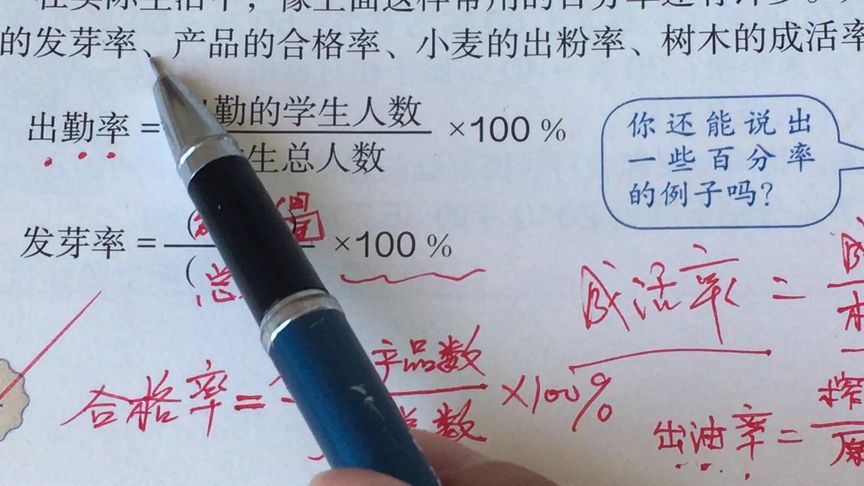 的发芽率、产品的合格率、小麦的出粉率、树木的成活率
出勤率 = 勤的学生人数 ×100 %
生总人数
你还能说出
一些百分率
的例子吗?
发芽率 = ( ×100 %
( 总
成活率 =
合格率 = 产品数 ×100%
数
出油率 = 榨